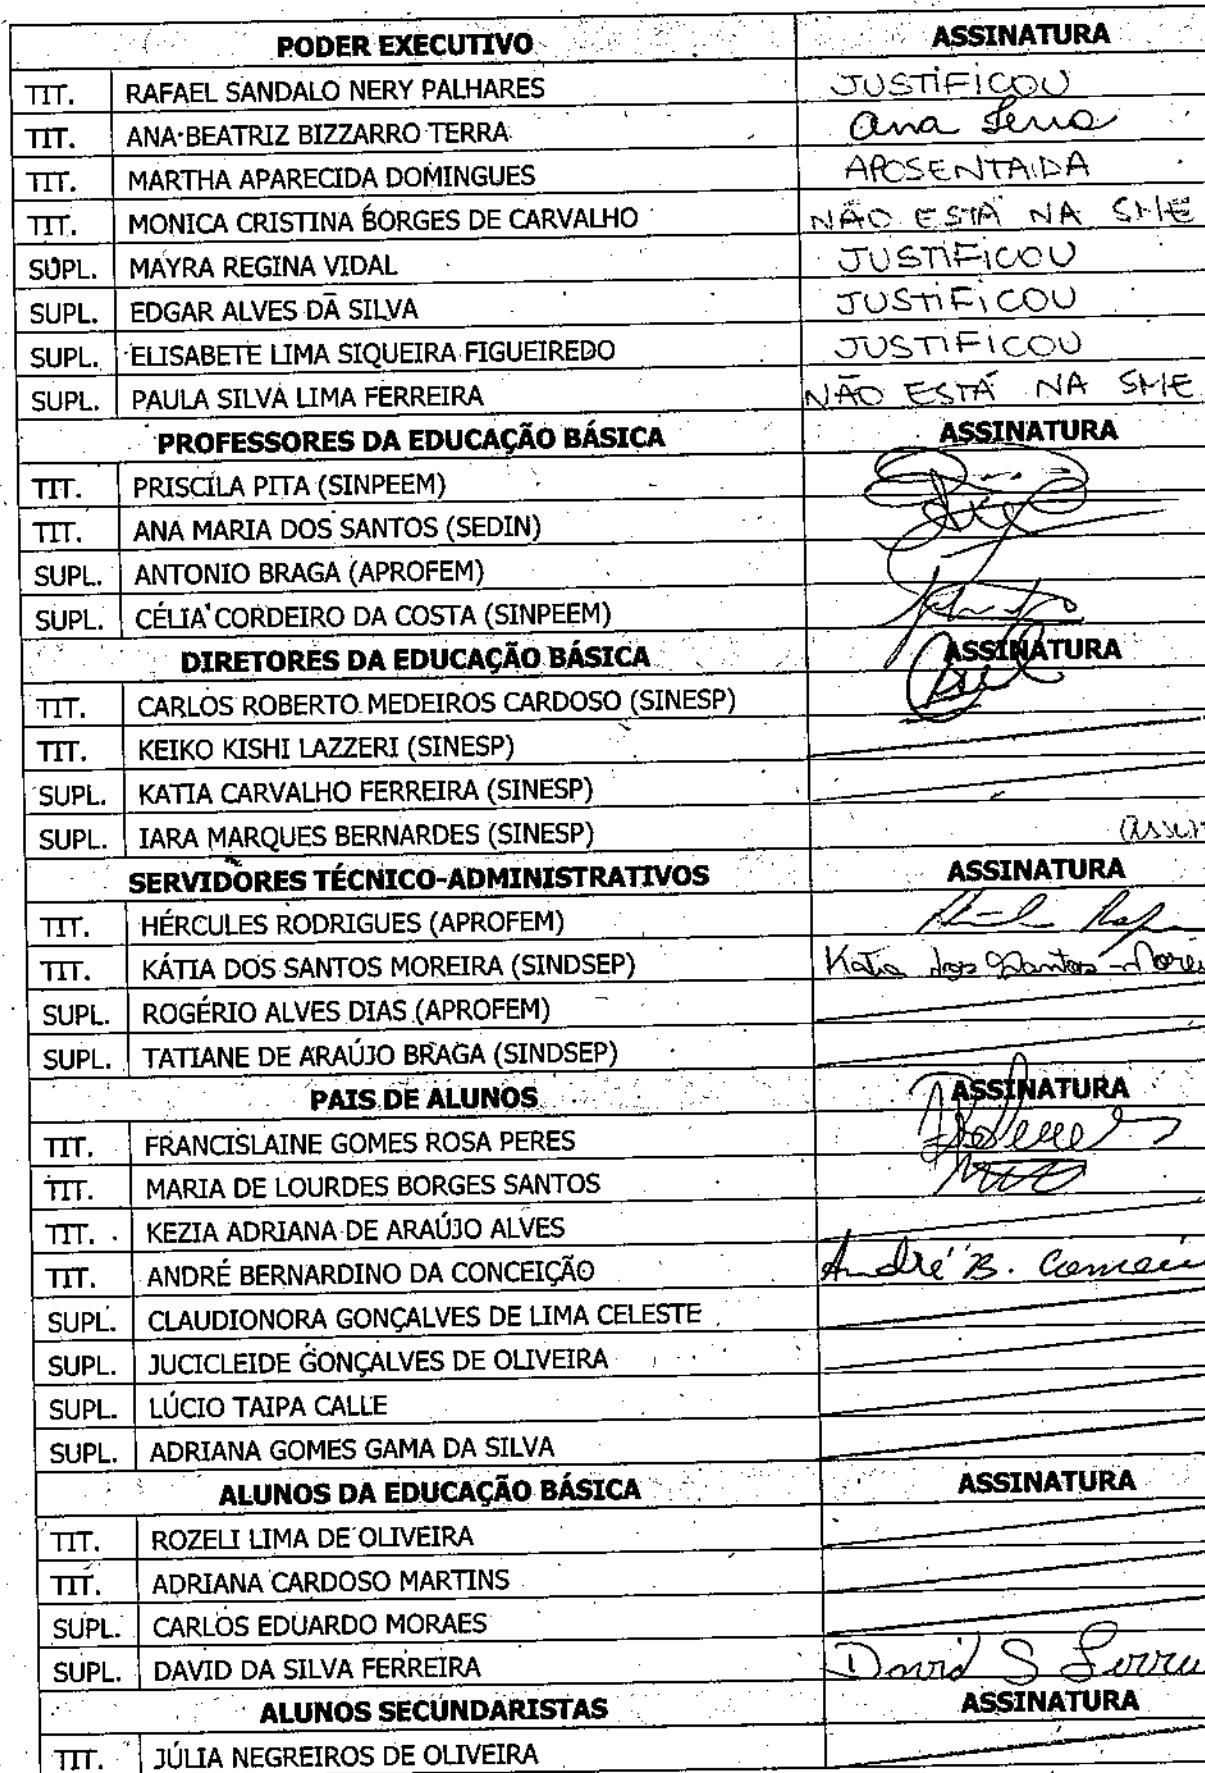 PODER EXECUTIVO ASSINATURA
TIT. RAFAEL SANDALO NERY PALHARES JUSTIFICOU
TIT. ANA BEATRIZ BIZZARRO TERRA Ana Terra
TIT. MARTHA APARECIDA DOMINGUES APOSENTADA
TIT. MONICA CRISTINA BORGES DE CARVALHO NÃO ESTÁ NA SME
SUPL. MAYRA REGINA VIDAL JUSTIFICOU
SUPL. EDGAR ALVES DA SILVA JUSTIFICOU
SUPL. ELISABETE LIMA SIQUEIRA FIGUEIREDO JUSTIFICOU
SUPL. PAULA SILVA LIMA FERREIRA NÃO ESTÁ NA SME
PROFESSORES DA EDUCAÇÃO BÁSICA ASSINATURA
TIT. PRISCILA PITA (SINPEEM)
TIT. ANA MARIA DOS SANTOS (SEDIN)
SUPL. ANTONIO BRAGA (APROFEM)
SUPL. CÉLIA CORDEIRO DA COSTA (SINPEEM)
DIRETORES DA EDUCAÇÃO BÁSICA ASSINATURA
TIT. CARLOS ROBERTO MEDEIROS CARDOSO (SINESP)
TIT. KEIKO KISHI LAZZERI (SINESP)
SUPL. KATIA CARVALHO FERREIRA (SINESP)
SUPL. IARA MARQUES BERNARDES (SINESP)
SERVIDORES TÉCNICO-ADMINISTRATIVOS ASSINATURA
TIT. HÉRCULES RODRIGUES (APROFEM)
TIT. KÁTIA DOS SANTOS MOREIRA (SINDSEP) Katia dos Santos Morei
SUPL. ROGÉRIO ALVES DIAS (APROFEM)
SUPL. TATIANE DE ARAÚJO BRAGA (SINDSEP)
PAIS DE ALUNOS ASSINATURA
TIT. FRANCISLAINE GOMES ROSA PERES
TIT. MARIA DE LOURDES BORGES SANTOS
TIT. KEZIA ADRIANA DE ARAÚJO ALVES
TIT. ANDRÉ BERNARDINO DA CONCEIÇÃO André B. Concei
SUPL. CLAUDIONORA GONÇALVES DE LIMA CELESTE
SUPL. JUCICLEIDE GONÇALVES DE OLIVEIRA
SUPL. LÚCIO TAIPA CALLE
SUPL. ADRIANA GOMES GAMA DA SILVA
ALUNOS DA EDUCAÇÃO BÁSICA ASSINATURA
TIT. ROZELI LIMA DE OLIVEIRA
TIT. ADRIANA CARDOSO MARTINS
SUPL. CARLOS EDUARDO MORAES
SUPL. DAVID DA SILVA FERREIRA David S Ferrei
ALUNOS SECUNDARISTAS ASSINATURA
TIT. JÚLIA NEGREIROS DE OLIVEIRA